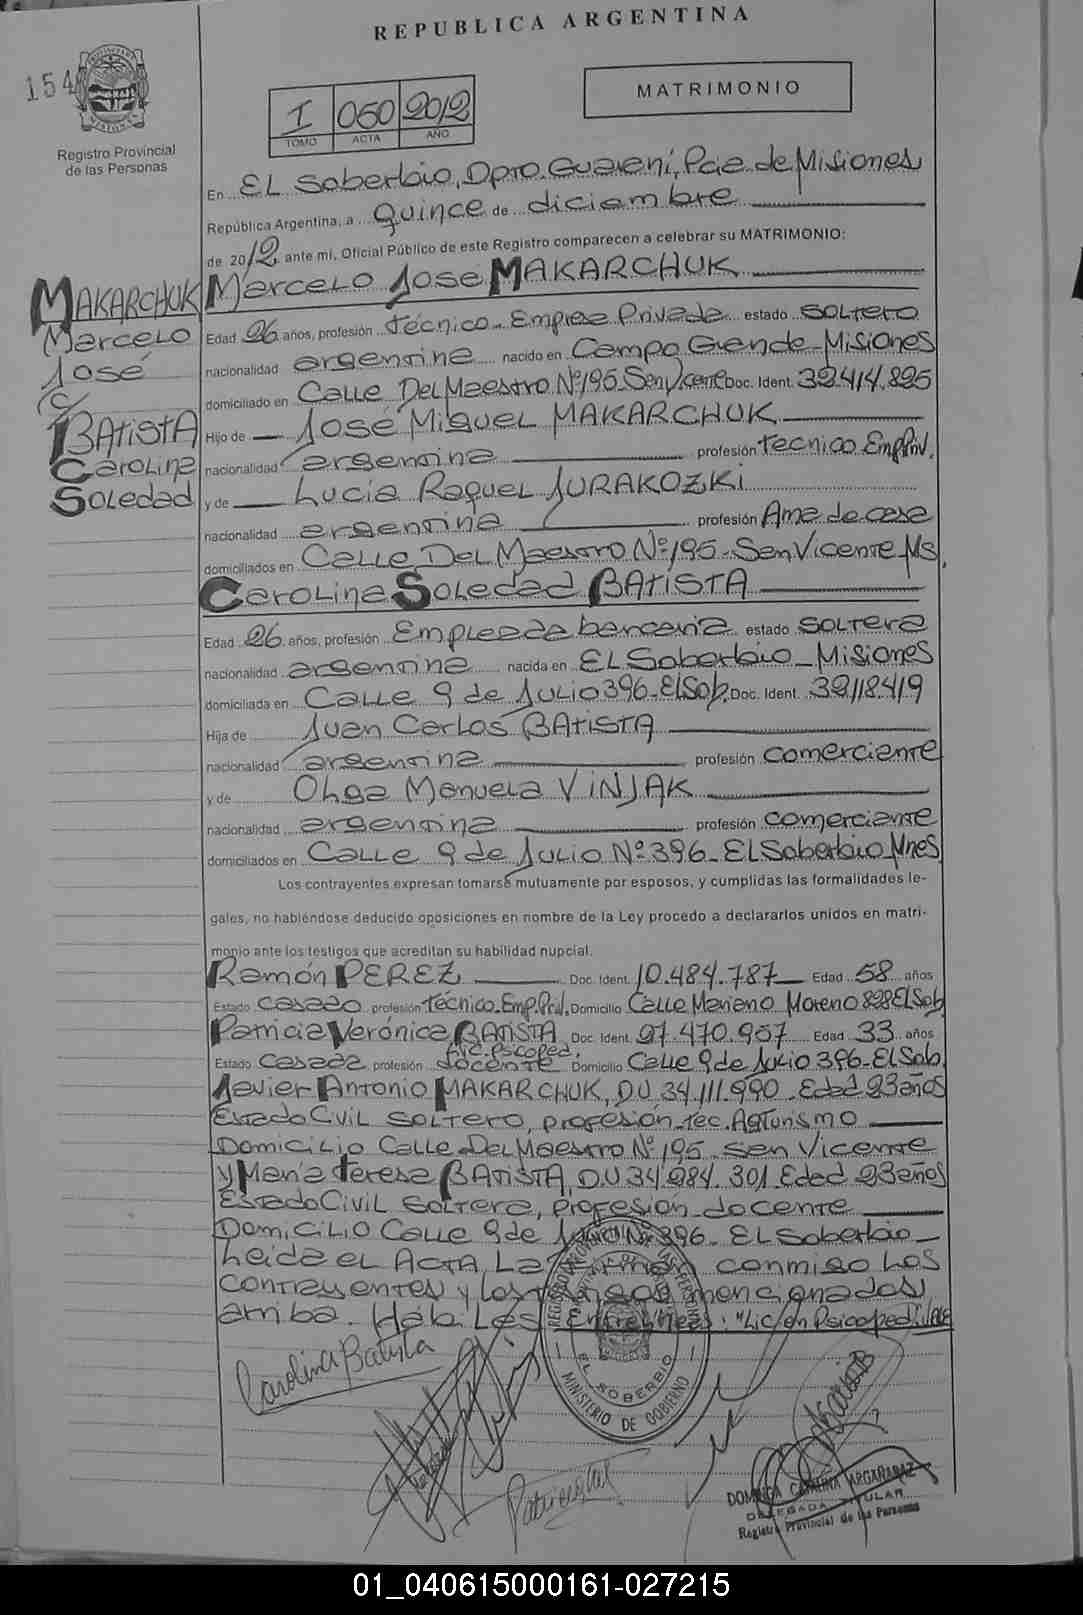 REPUBLICA ARGENTINA
154
Registro Provincial
de las Personas
MATRIMONIO
I 060 2012
TOMO ACTA AÑO
En EL Soberbio, Dpto. Guaraní, Pcia. de Misiones
República Argentina, a quince de diciembre
de 2012 ante mi, Oficial Público de este Registro comparecen a celebrar su MATRIMONIO:
MAKARCHUK
Marcelo
José
c/
BATISTA
Carolina
Soledad
Marcelo José MAKARCHUK
Edad 26 años, profesión Técnico Empresa Privada estado soltero
nacionalidad argentina nacido en Campo Grande Misiones
domiciliado en Calle Del Maestro Nº195 San Vicente Doc. Ident. 32.414.825
Hijo de José Miguel MAKARCHUK
nacionalidad argentina profesión Tecnico Emp. Priv.
y de Lucia Raquel JURAKOZKI
nacionalidad argentina profesión Ama de casa
domiciliados en Calle Del Maestro Nº195 - San Vicente Ms.
Carolina Soledad BATISTA
Edad 26 años, profesión Empleada bancaria estado soltera
nacionalidad argentina nacida en EL Soberbio - Misiones
domiciliada en Calle 9 de Julio 396 - El Sob. Doc. Ident. 32.118.419
Hija de Juan Carlos BATISTA
nacionalidad argentina profesión comerciante
y de Olga Manuela VINJAK
nacionalidad argentina profesión comerciante
domiciliados en Calle 9 de Julio Nº396 - EL Soberbio Mnes
Los contrayentes expresan tomarse mutuamente por esposos, y cumplidas las formalidades le-
gales, no habiéndose deducido oposiciones en nombre de la Ley procedo a declararlos unidos en matri-
monio ante los testigos que acreditan su habilidad nupcial.
Ramón PEREZ Doc. Ident. 10.484.787 Edad 58 años
Estado Casado profesión Técnico. Emp. Priv. Domicilio Calle Mariano Moreno 828 El Sob.
Patricia Verónica BATISTA Doc. Ident. 27.470.957 Edad 33 años
Lic. Psicoped.
Estado Casada profesión docente Domicilio Calle 9 de Julio 396 - El Sob.
Javier Antonio MAKARCHUK, DU 34.111.990. Edad 23 años
Estado Civil soltero, profesión Tec. Ag. Turismo
Domicilio Calle Del Maestro Nº195 - San Vicente
y María Teresa BATISTA, DU 34.984.301 Edad 23 años
Estado Civil soltera, profesión docente
Domicilio Calle 9 de Julio Nº396 - EL Soberbio -
Leida el ACTA, La firman conmigo los
contrayentes y los testigos mencionados
arriba. Hábiles Entrelíneas: "Lic. en Psicoped." Vale
Carolina Batista
EL SOBERBIO
MINISTERIO DE GOBIERNO
DOMINGA CATALINA ARGAÑARAZ
DELEGADA TITULAR
Registro Provincial de las Personas
01_040615000161-027215